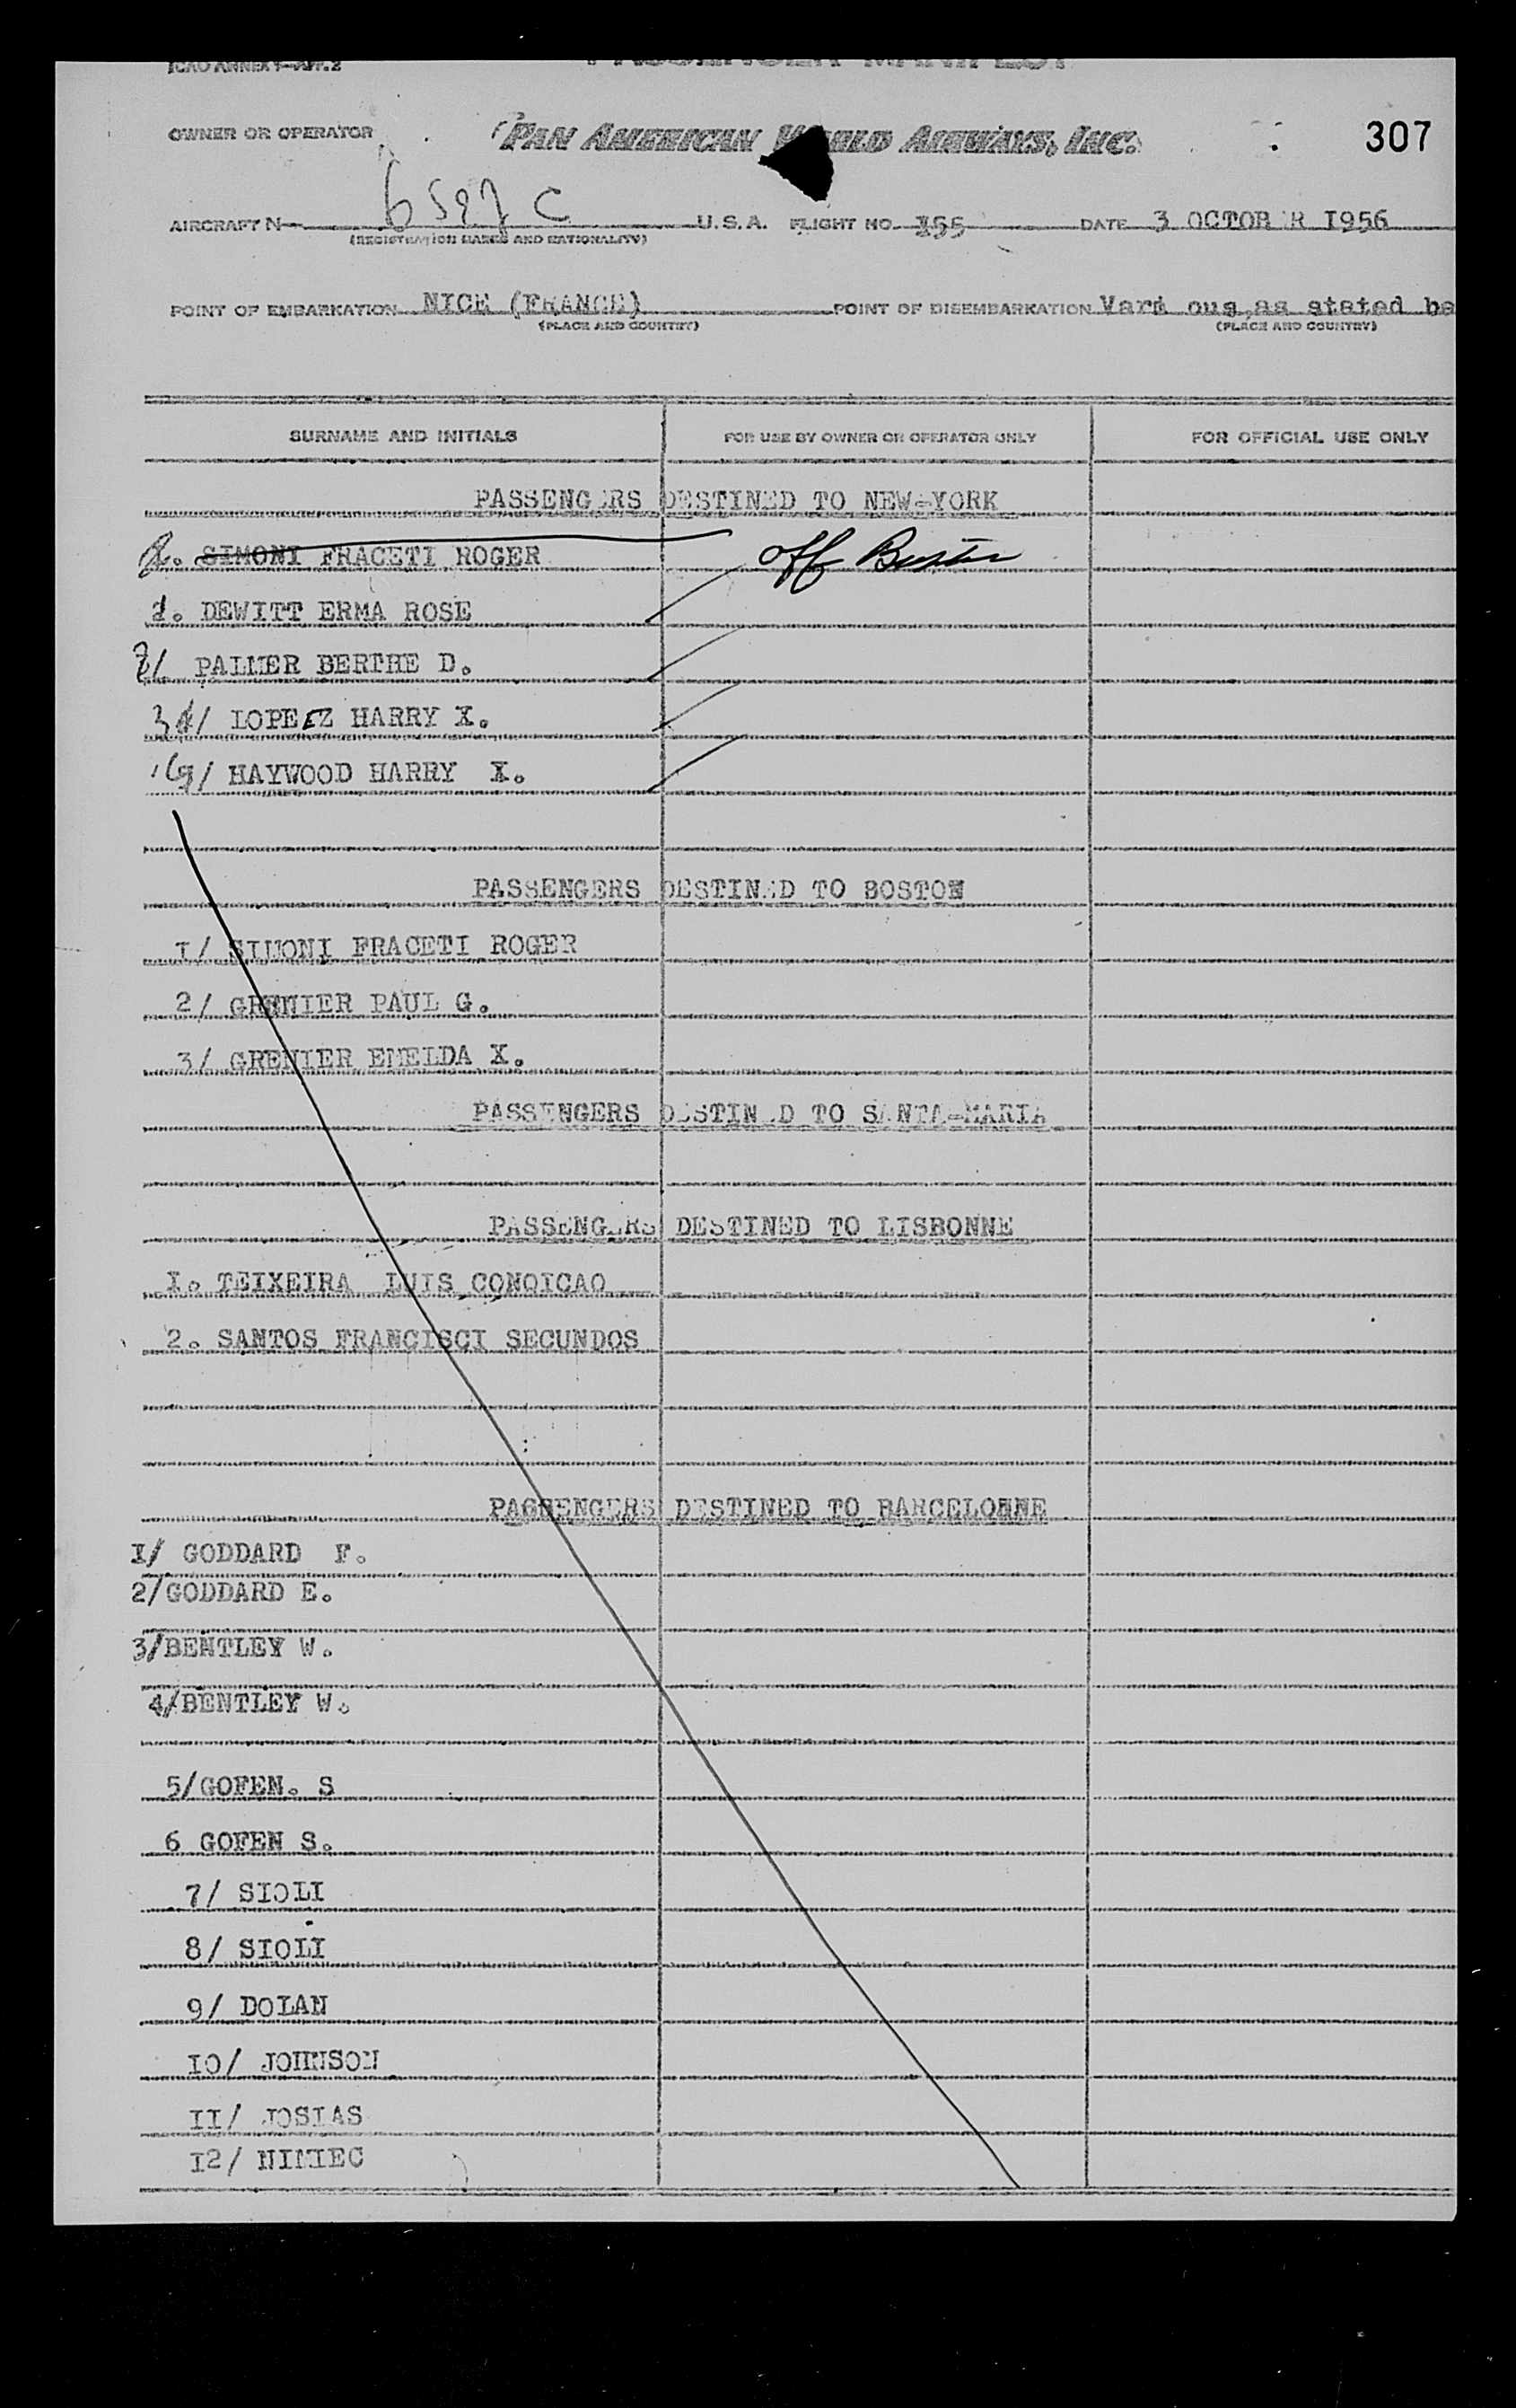 ICAO ANNEX 9-APP. 2 PASSENGER MANIFEST
OWNER OR OPERATOR PAN AMERICAN WORLD AIRWAYS, INC. 307
AIRCRAFT N 6527 C U.S.A. FLIGHT NO. 155 DATE 3 OCTOBER 1956
(REGISTRATION MARKS AND NATIONALITY)
POINT OF EMBARKATION NICE (FRANCE) POINT OF DISEMBARKATION Vari ous,as stated be
(PLACE AND COUNTRY) (PLACE AND COUNTRY)
SURNAME AND INITIALS FOR USE BY OWNER OR OPERATOR ONLY FOR OFFICIAL USE ONLY
PASSENGERS DESTINED TO NEW-YORK
SIMONI FRACETI ROGER off Boston
DEWITT ERMA ROSE
2/ PALMER BERTHE D.
3 4/ LOPEEZ HARRY X.
HAYWOOD HARRY X.
PASSENGERS DESTINED TO BOSTON
I/ SIMONI FRACETI ROGER
2/ GRENIER PAUL G.
3/ GRENIER EMELDA X.
PASSENGERS DESTINED TO SANTA-MARIA
PASSENGERS DESTINED TO LISBONNE
I. TEIXEIRA LUIS CONQICAO
2. SANTOS FRANCISCI SECUNDOS
PASSENGERS DESTINED TO BARCELONNE
I/ GODDARD F.
2/GODDARD E.
3/BENTLEY W.
4/BENTLEY W.
5/GOFEN. S
6 GOFEN S.
7/ SIOLI
8/ SIOLI
9/ DOLAN
IO/ JOHNSON
II/ JOSIAS
I2/ NIMIEC